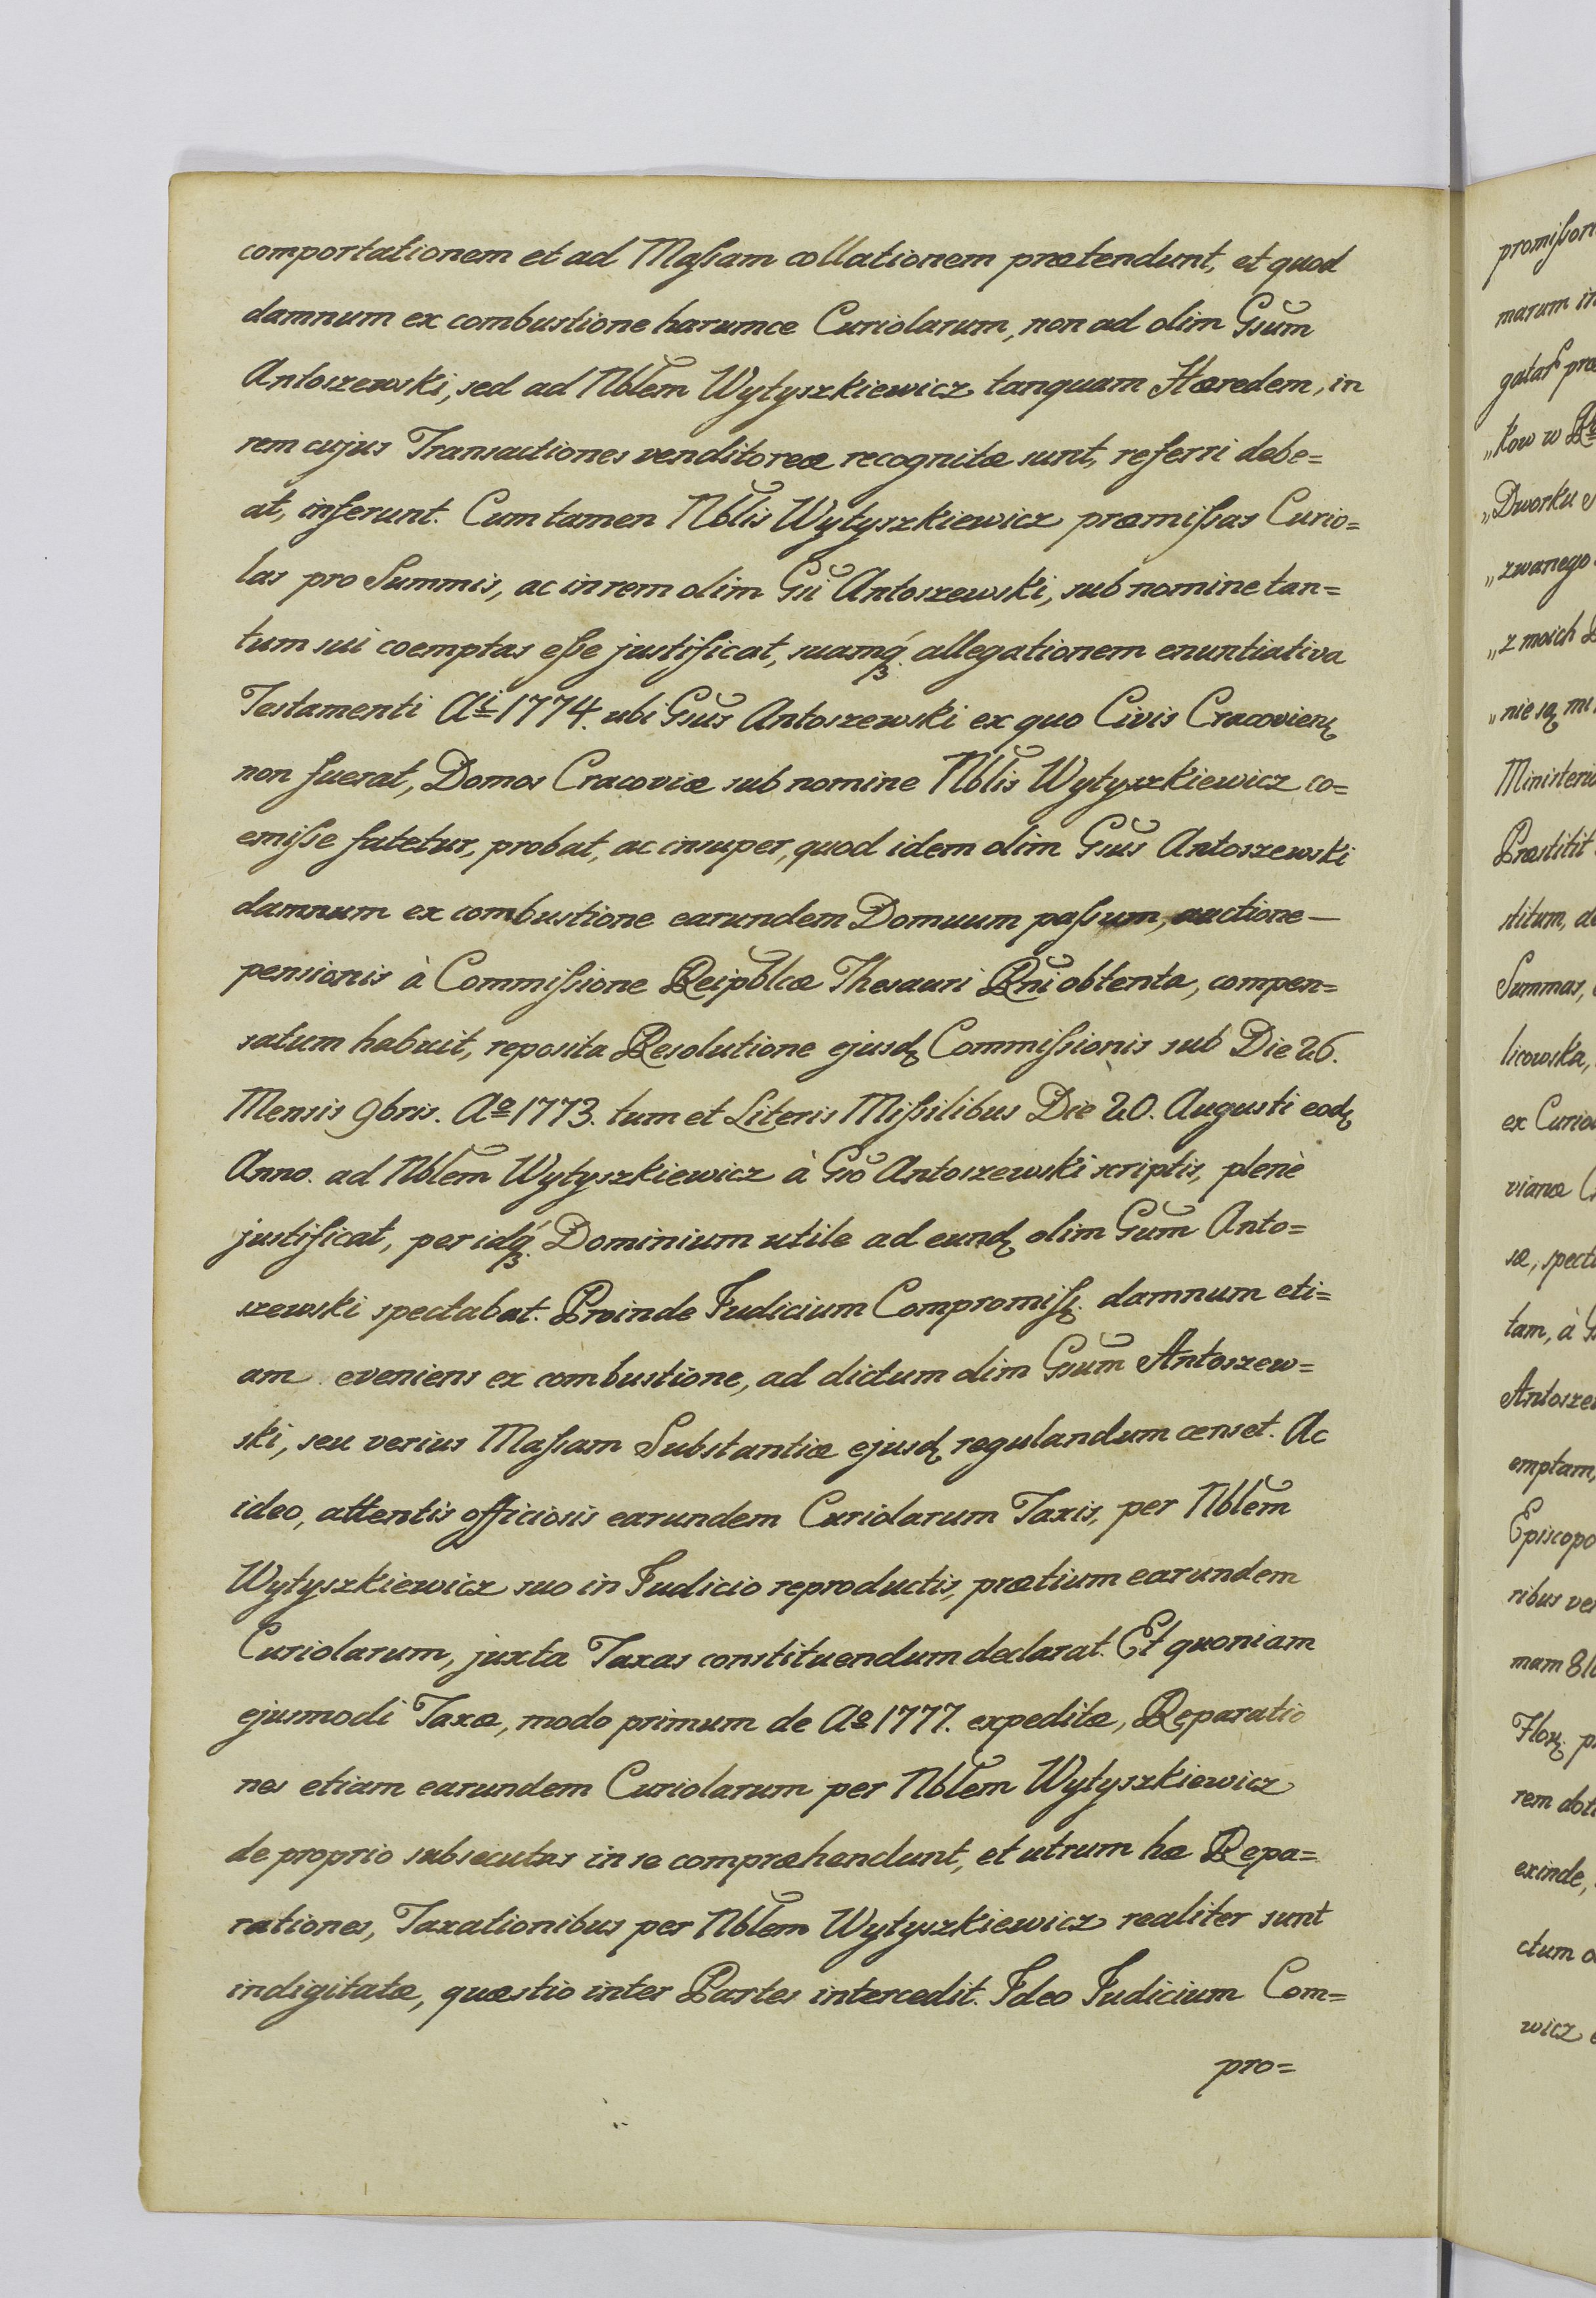 comportationem et ad Maſsam collationem prætendunt, et quod
damnum ex combustione harumce Curiolarum, non ad olim Gsum
Antoszewski, sed ad Nblem Wytyszkiewicz tanquam Hæredem, in
rem cujus Transactiones venditoreæ recognitæ sunt, referri debe=
at, inferunt. Cum tamen Nblis Wytyszkiewicz præmiſsas Curio=
las pro Summis, ac in rem olim Gsi Antoszewski, sub nomine tan=
tum sui coemptas eſse justificat, suamq́ꝫ allegationem enuntiativa
Testamenti Ai 1774. ubi Gsus Antoszewski ex quo Civis Cracovienꝫ
non fuerat, Domos Cracoviæ sub nomine Nblis Wytyszkiewicz co=
emiſse fatetur, probat, ac insuper, quod idem olim Gsus Antoszewski
damnum ex combustione earundem Domuum paſsum, auctione—
pensionis à Commiſsione Reipblcæ Thesauri Rni obtenta, compen=
satum habuit, reposita Resolutione ejusdꝫ Commiſsionis sub Die 26.
Mensis 9bris. Aº 1773. tum et Literis Miſsilibus Die 20. Augusti eodꝫ
Anno. ad Nblem Wytyszkiewicz à Gso Antoszewski scriptis, plenè
justificat, per idq́ꝫ Dominium utile ad eundꝫ olim Gsum Anto=
szewski spectabat. Proinde Judicium Compromiſsꝫ. damnum eti=
am eveniens ex combustione, ad dictum olim Gsum Antoszew=
ski, seu verius Maſsam Substantiæ ejusdꝫ regulandum censet. Ac
ideo, attentis officiosis earundem Curiolarum Taxis, per Nblem
Wytyszkiewicz suo in Judicio reproductis, prætium earundem
Curiolarum, juxta Taxas constituendum declarat. Et quoniam
ejusmodi Taxæ, modo primum de Aº 1777. expeditæ, Reparatio
nes etiam earundem Curiolarum per Nblem Wytyszkiewicz
de proprio subsecutas in se compræhendunt, et utrum hæ Repa=
rationes, Taxationibus per Nblem Wytyszkiewicz realiter sunt
indigitatæ, quæstio inter Partes intercedit. Ideo Judicium Com=
pro=
marum in
„kow w
„Dworku
„zwanego
„z moich
„nie są
Præstitit
ditum,
Summas,
licowska,
vianæ
tam, à
emptam,
Episcopo
exinde,
ctum
wicz